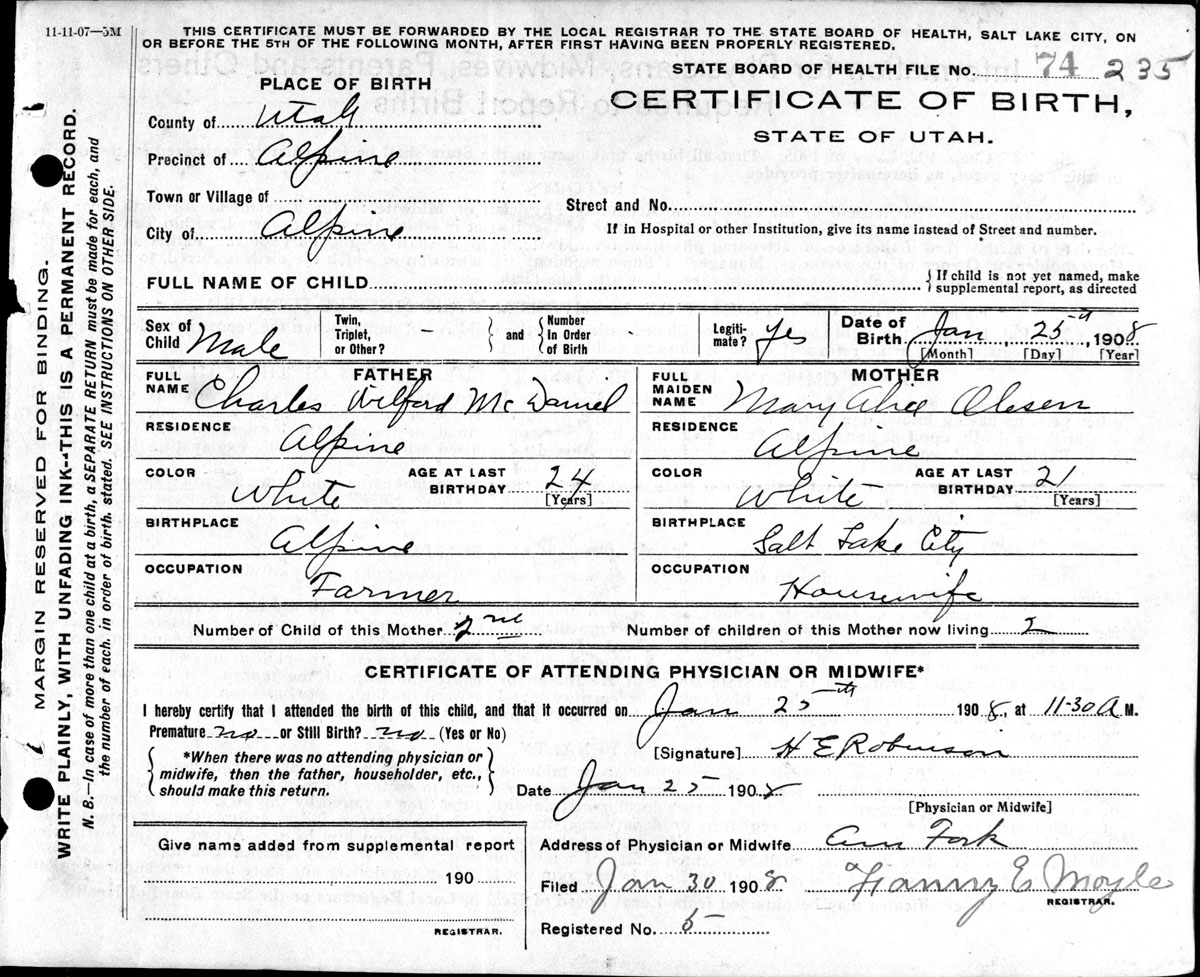 11-11-07—5M
THIS CERTIFICATE MUST BE FORWARDED BY THE LOCAL REGISTRAR TO THE STATE BOARD OF HEALTH, SALT LAKE CITY, ON
OR BEFORE THE 5TH OF THE FOLLOWING MONTH, AFTER FIRST HAVING BEEN PROPERLY REGISTERED.
STATE BOARD OF HEALTH FILE No. 74 235
PLACE OF BIRTH
CERTIFICATE OF BIRTH,
STATE OF UTAH.
County of Utah
Precinct of Alpine
Town or Village of
Street and No.
City of Alpine
If in Hospital or other Institution, give its name instead of Street and number.
FULL NAME OF CHILD
{If child is not yet named, make
supplemental report, as directed
Sex of Child Male
Twin, Triplet, or Other?
} and {
Number In Order of Birth
Legiti- mate? Yes
Date of Birth Jan 25th, 1908
[Month] [Day] [Year]
FATHER
FULL NAME Charles Wilford McDaniel
RESIDENCE
Alpine
COLOR White
AGE AT LAST BIRTHDAY 24
[Years]
BIRTHPLACE
Alpine
OCCUPATION
Farmer
MOTHER
FULL MAIDEN NAME Mary Alice Olesen
RESIDENCE
Alpine
COLOR White
AGE AT LAST BIRTHDAY 21
[Years]
BIRTHPLACE
Salt Lake City
OCCUPATION
Housewife
Number of Child of this Mother 2nd
Number of children of this Mother now living 2
CERTIFICATE OF ATTENDING PHYSICIAN OR MIDWIFE*
I hereby certify that I attended the birth of this child, and that it occurred on Jan 25th 1908, at 11-30 A M.
Premature no or Still Birth? no (Yes or No)
*When there was no attending physician or
midwife, then the father, householder, etc.,
should make this return.
[Signature] H E Robinson
Date Jan 25 1908
[Physician or Midwife]
Give name added from supplemental report
190
REGISTRAR.
Address of Physician or Midwife Am Fork
Filed Jan 30 1908 Fanny E Moyle
REGISTRAR.
Registered No. 5
MARGIN RESERVED FOR BINDING.
WRITE PLAINLY, WITH UNFADING INK--THIS IS A PERMANENT RECORD.
N. B.—In case of more than one child at a birth, a SEPARATE RETURN must be made for each, and
the number of each, in order of birth, stated. SEE INSTRUCTIONS ON OTHER SIDE.